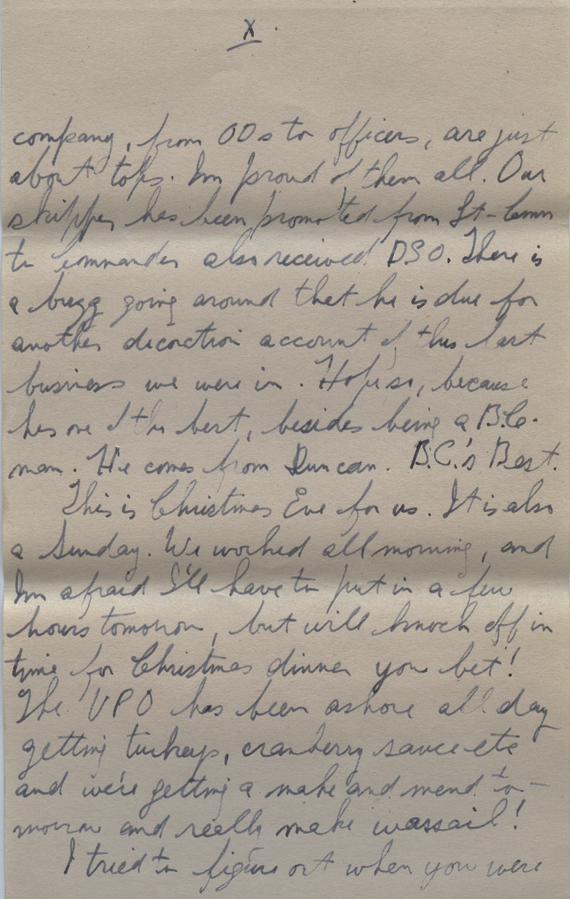 X
company, from ODs to officers, are just
about tops. Im proud of them all. Our
skipper has been promoted from Lt-Comm
to commander also received DSO. There is
a buzz going around that he is due for
another decoration account of this last
business we were in. Hope so, because
hes one of the best, besides being a B.C.
man. He comes from Duncan. B.C.'s Best.
This is Christmas Eve for us. It is also
a Sunday. We worked all morning, and
Im afraid I'll have to put in a few
hours tomorrow, but will knock off in
time for Christmas dinner you bet!
The VPO has been ashore all day
getting turkeys, cranberry sauce etc
and we're getting a make and mend to-
morrow and really make wassail!
I tried to figure out when you were